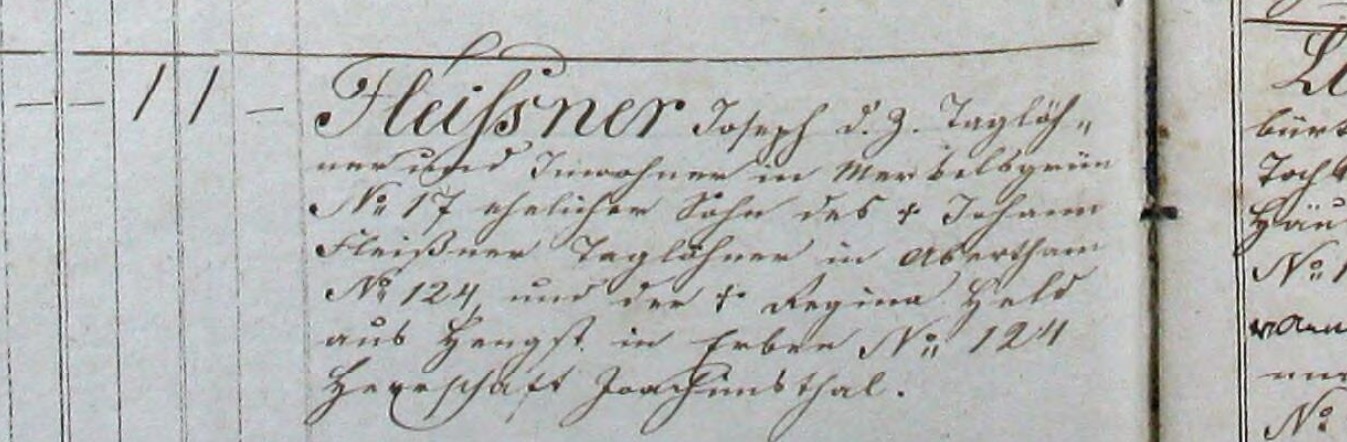 — — 1 1 — Fleißner Joseph d. Z. Taglöh„
ner und Inwohner in Merkelsgrün
No 17 ehelicher Sohn des † Johann
Fleißner Taglöhner in Abertham
No 124, und der † Regina Held
aus Hengst in Erben No 124
Herrschaft Joachimsthal.
bürt
Toch
Häu
No 1
No